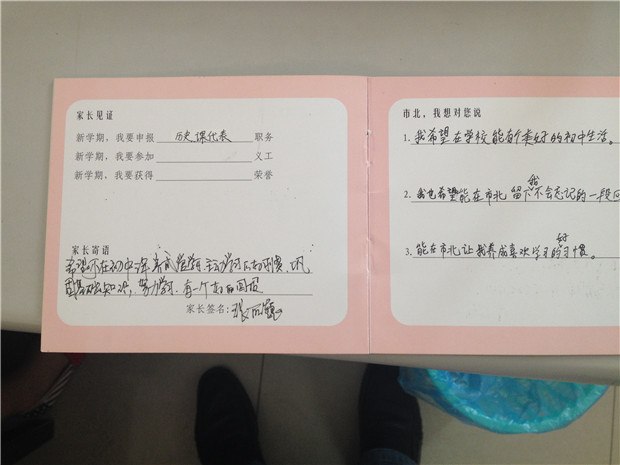 家长见证
新学期，我要申报 历史课代表 职务
新学期，我要参加 义工
新学期、我要获得 荣誉
家长寄语
希望你在初中
知识，努力学习，有一个好的回报
家长签名：张
市北，我想对您说
1. 我希望在学校能有个美好的初中生活。
2. 我也希望能在市北留下我不会忘记的一段回
3. 能在市北让我养成喜欢学习的好习惯。